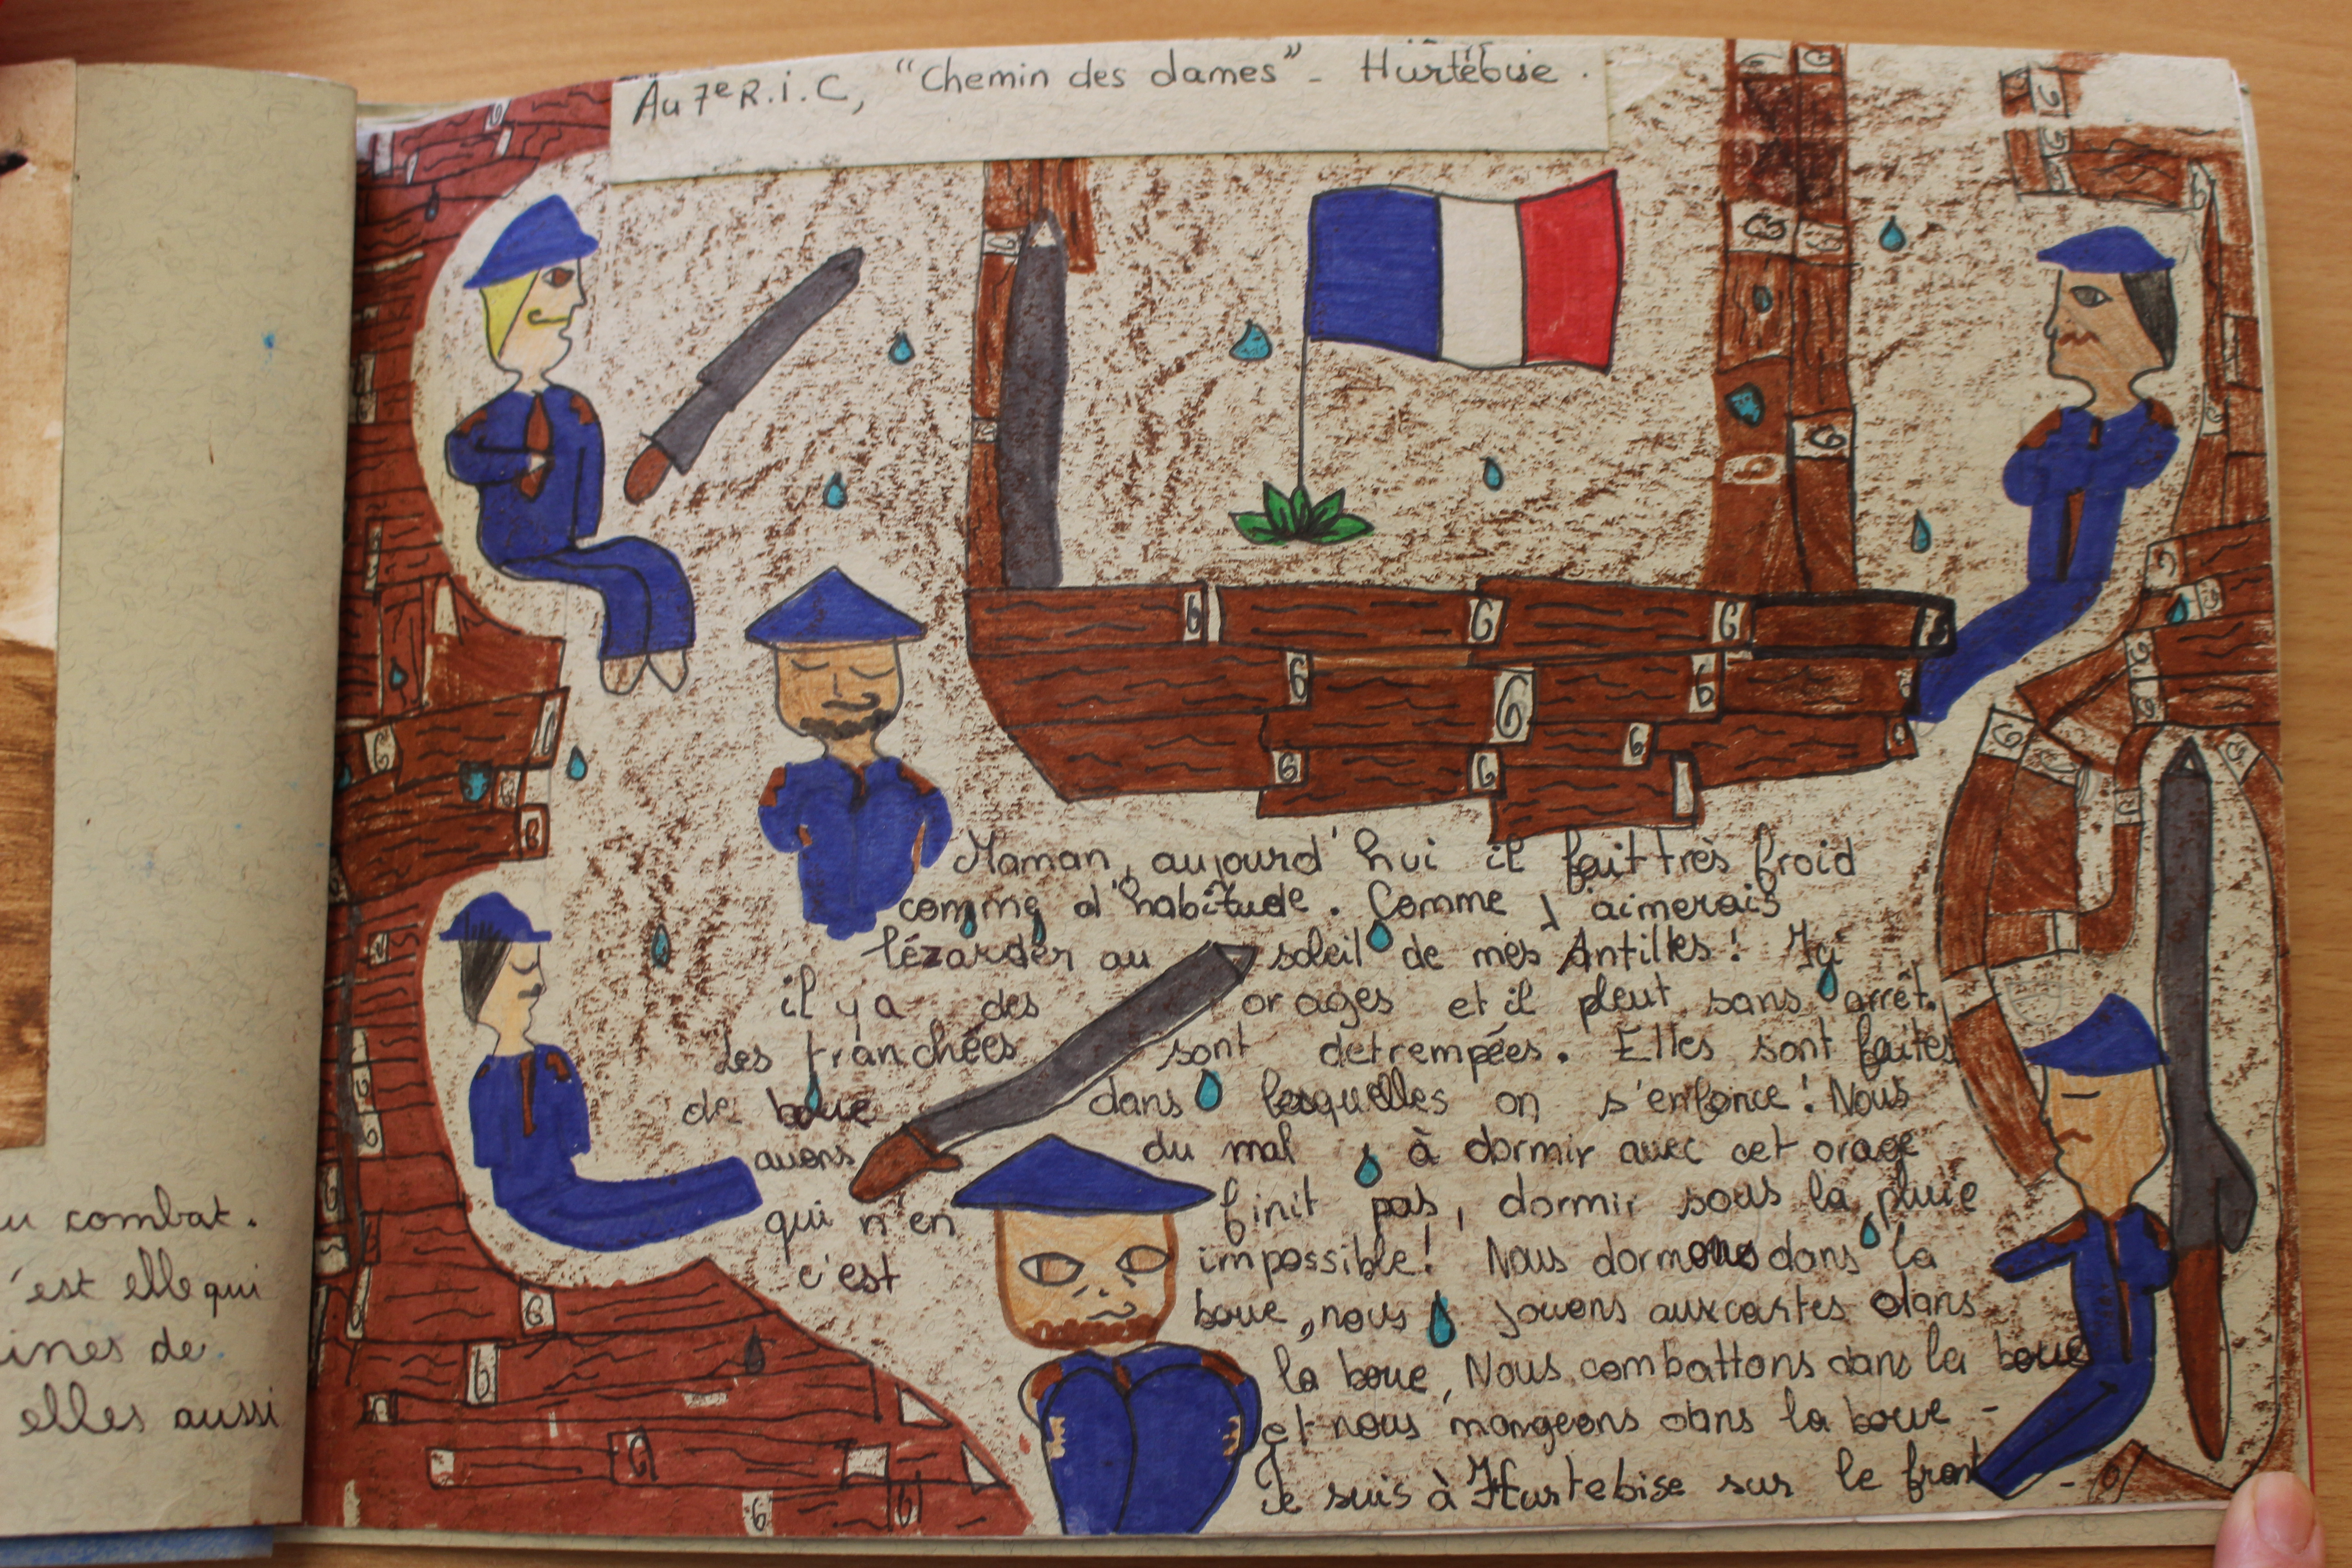 u combat.
'est elle qui
ines de
elles aussi
Au 7e R.i.C, "Chemin des dames" - Hurtebise.
Maman, aujourd'hui il fait très froid
comme d'habitude. Comme j'aimerais
lézarder au soleil de mes Antilles! Ici
il y a des orages et il pleut sans arrêt.
Les tranchées sont detrempées. Elles sont faites
de boue dans lesquelles on s'enfonce! Nous
avons du mal à dormir avec cet orage
qui n'en finit pas, dormir sous la pluie
c'est impossible! Nous dormons dans la
boue, nous jouons aux cartes dans
la boue, Nous combattons dans la boue
et nous mangeons dans la boue -
Je suis à Hurtebise sur le front -